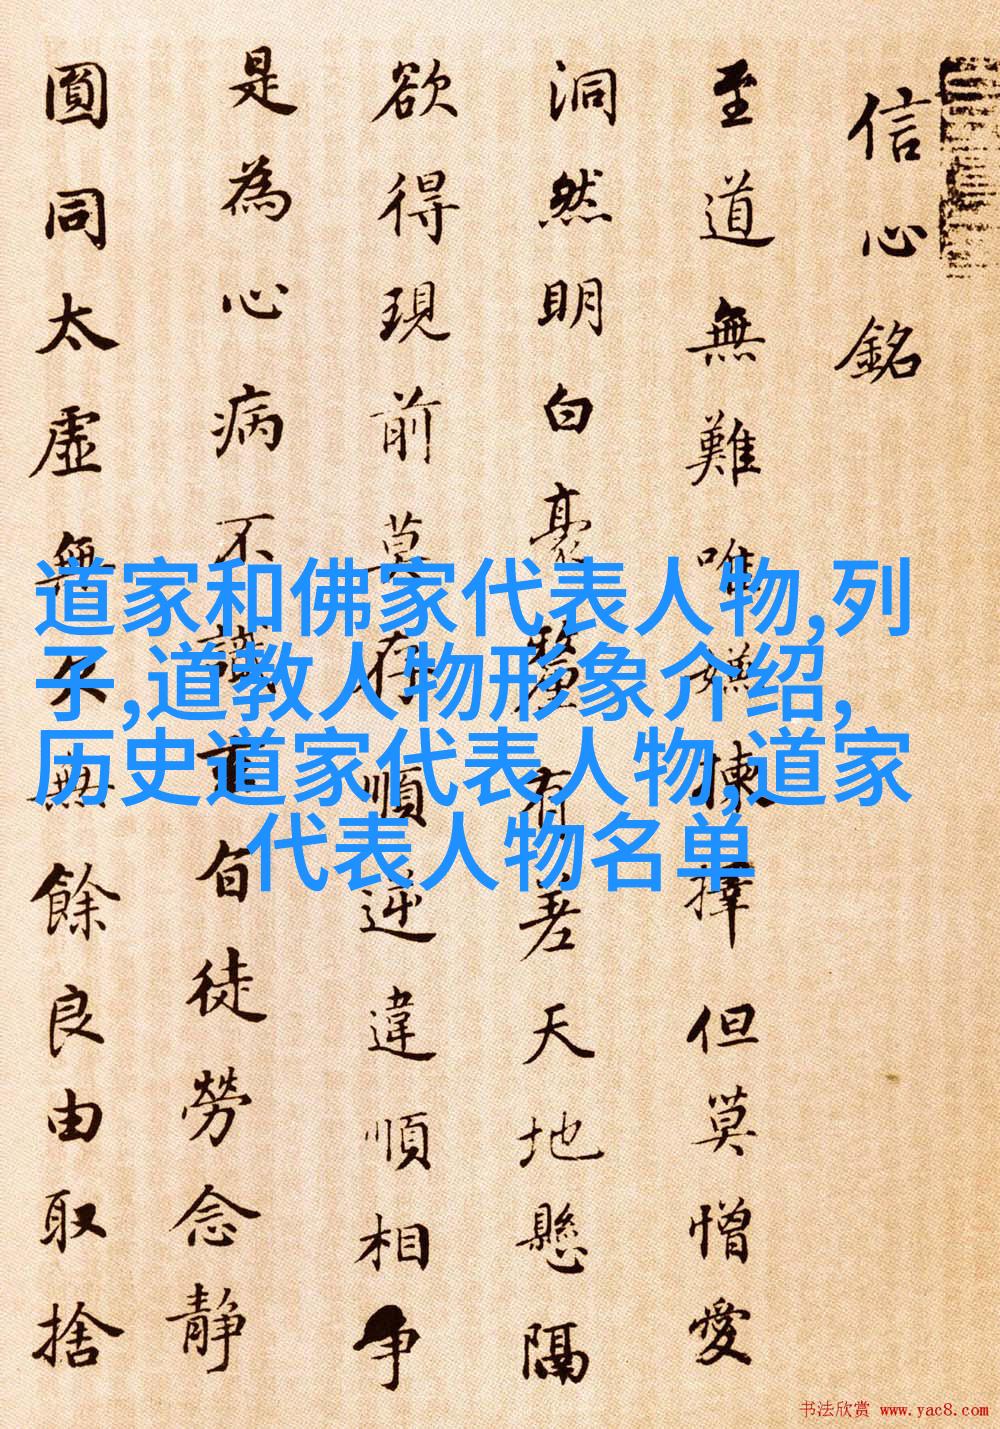 信心銘
至道無難唯嫌揀擇但莫憎愛
洞然明白毫釐有差天地懸隔
欲得現前莫存順逆違順相爭
是為心病不識玄旨徒勞念静
圓同太虛無欠無餘良由取捨
道家和佛家代表人物,列
子,道教人物形象介绍,
历史道家代表人物,道家
代表人物名单
书法欣赏 www.yac8.com